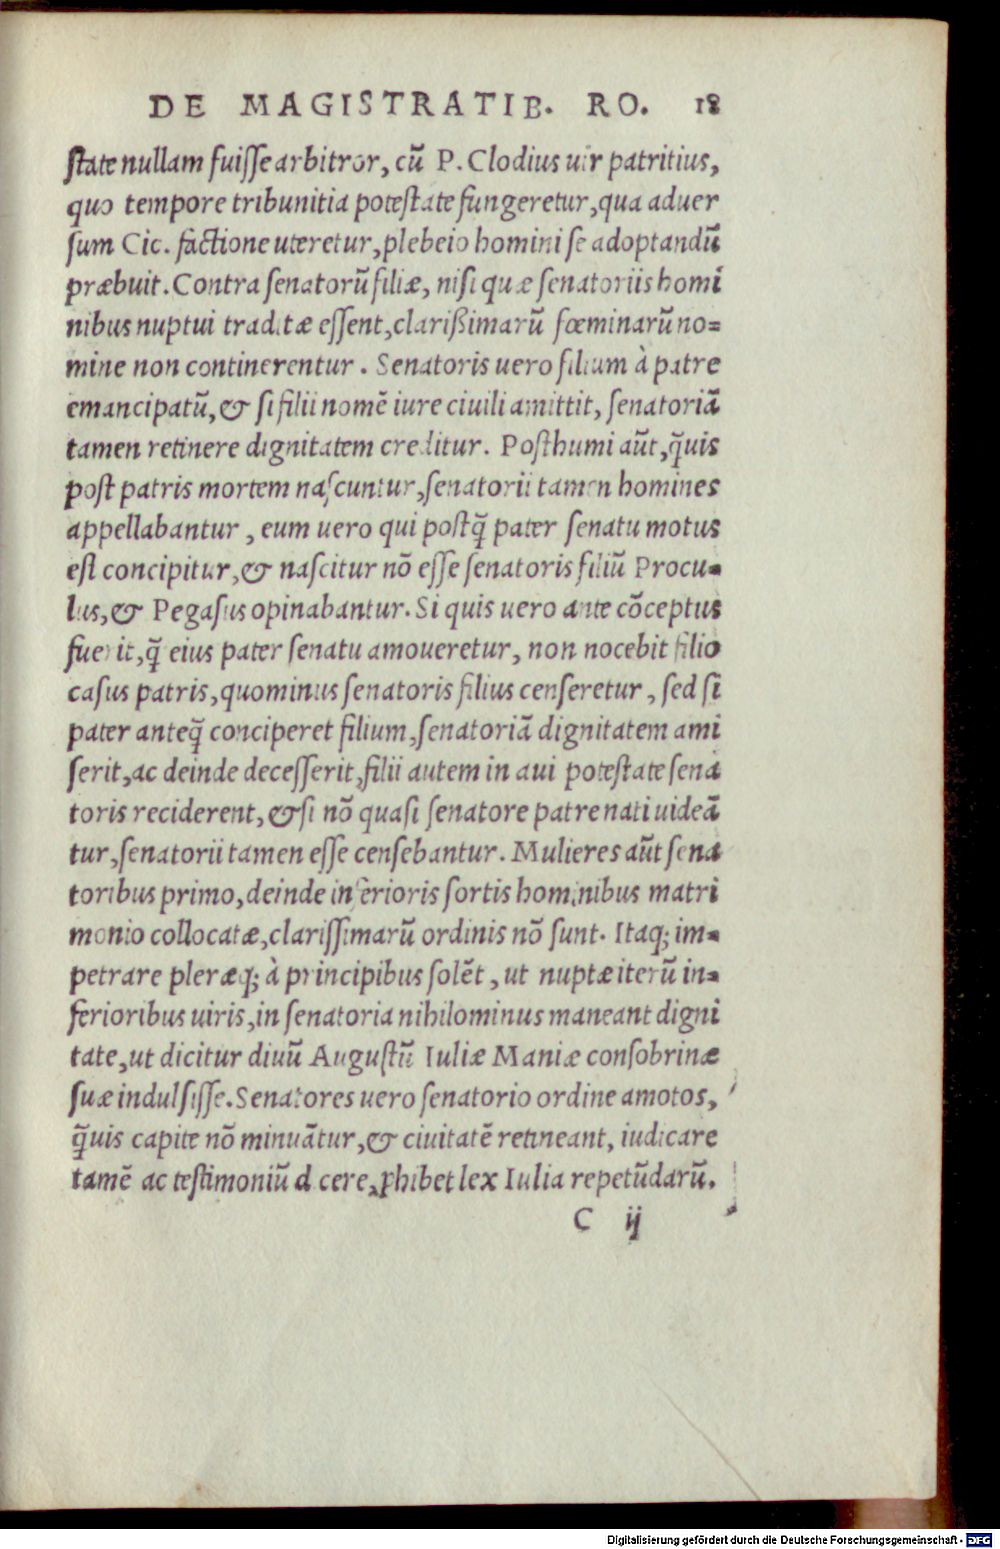 DE MAGISTRATIB. RO. 18
ſtate nullam fuiſſe arbitror, cũ P. Clodius uir patritius,
quo tempore tribunitia poteſtate fungeretur, qua aduer
ſum Cic. factione uteretur, plebeio homini ſe adoptandũ
præbuit. Contra ſenatorũ filiæ, niſi quæ ſenatoriis homi
nibus nuptui traditæ eſſent, clarißimarũ fœminarũ no=
mine non continerentur. Senatoris uero filium à patre
emancipatũ, & ſi filii nomẽ iure ciuili amittit, ſenatoriã
tamen retinere dignitatem creditur. Poſthumi aũt, q̃uis
poſt patris mortem naſcuntur, ſenatorii tamen homines
appellabantur, eum uero qui poſtq̃ pater ſenatu motus
eſt concipitur, & naſcitur nõ eſſe ſenatoris filiũ Procu=
lus, & Pegaſus opinabantur. Si quis uero ante cõceptus
fuerit, q̃ eius pater ſenatu amoueretur, non nocebit filio
caſus patris, quominus ſenatoris filius cenſeretur, ſed ſi
pater anteq̃ conciperet filium, ſenatoriã dignitatem ami
ſerit, ac deinde deceſſerit, filii autem in aui poteſtate ſena
toris reciderent, & ſi nõ quaſi ſenatore patre nati uideã
tur, ſenatorii tamen eſſe cenſebantur. Mulieres aũt ſena
toribus primo, deinde inferioris ſortis hominibus matri
monio collocatæ, clariſſimarũ ordinis nõ ſunt. Itaq; im=
petrare pleræq; à principibus ſolẽt, ut nuptæ iterũ in=
ferioribus uiris, in ſenatoria nihilominus maneant digni
tate, ut dicitur diuũ Auguſtũ Iuliæ Maniæ conſobrinæ
ſuæ indulſiſſe. Senatores uero ſenatorio ordine amotos,
q̃uis capite nõ minuãtur, & ciuitatẽ retineant, iudicare
tamẽ ac teſtimoniũ d cere, ꝓhibet lex Iulia repetũdarũ.
C ij
Digitalisierung gefördert durch die Deutsche Forschungsgemeinschaft - DFG